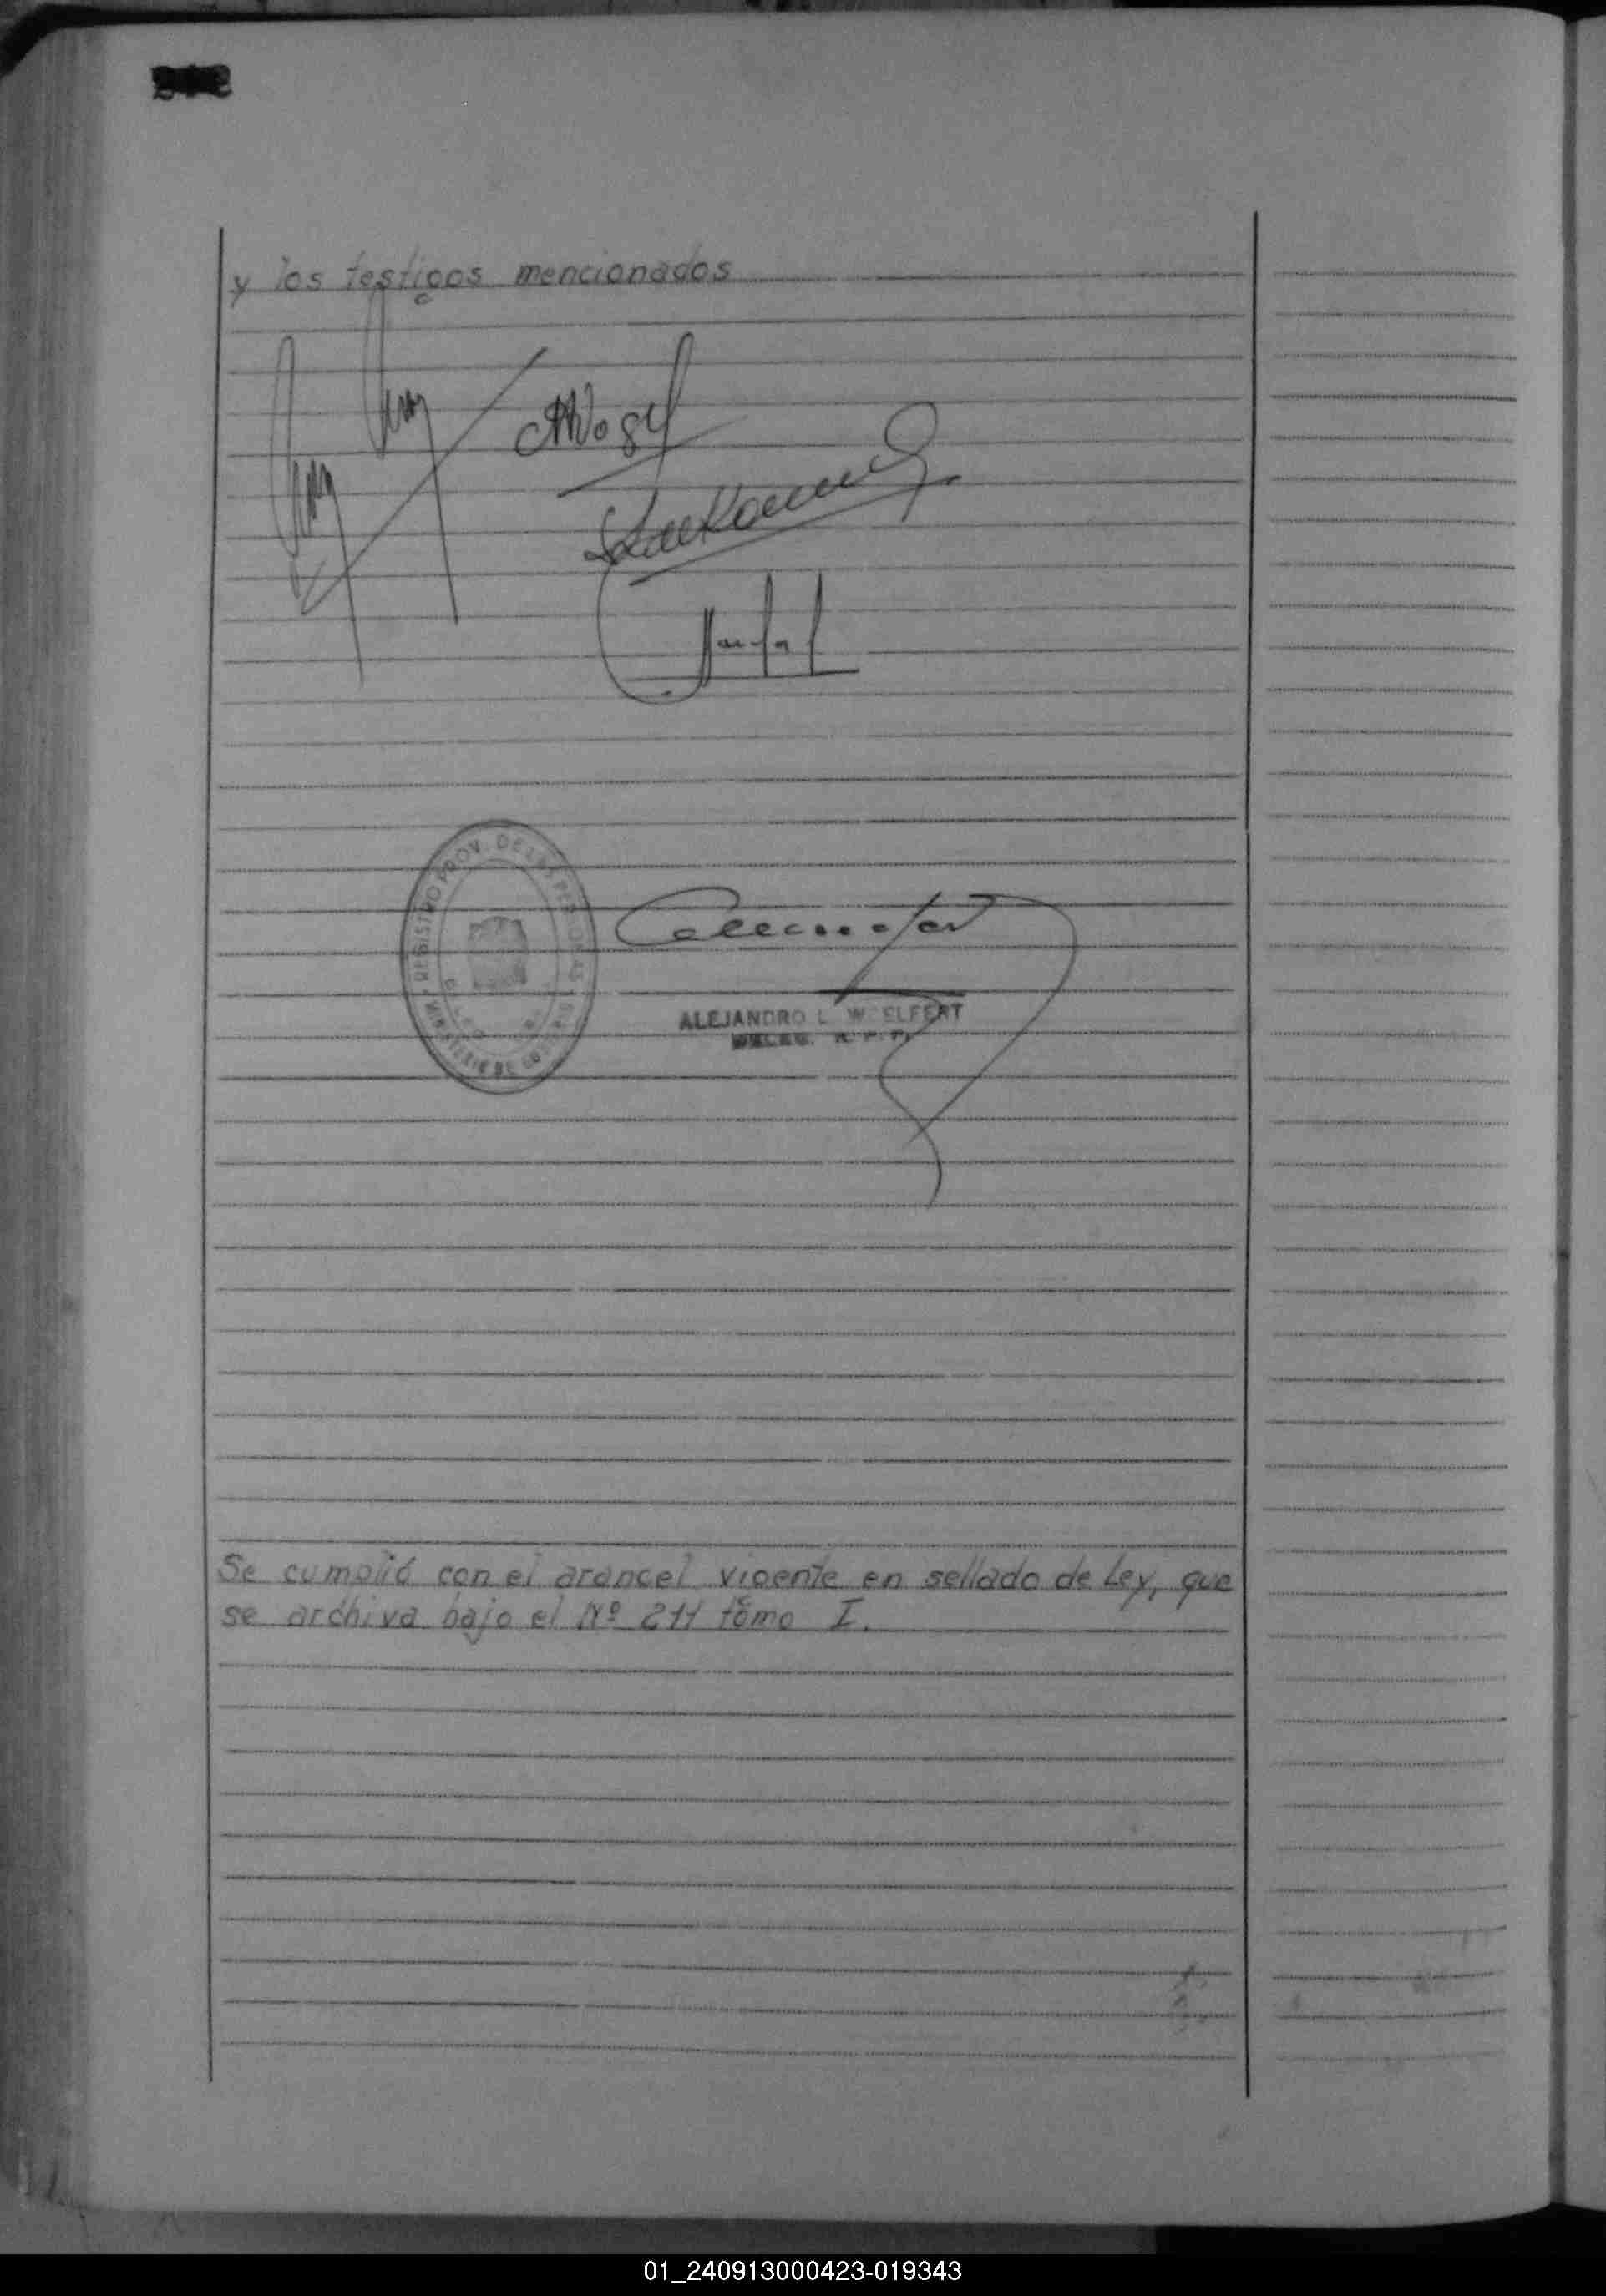 y los testigos mencionados
REGISTRO PROV. DE LAS PERSONAS
MINISTERIO DE
ALEJANDRO L. WOELFERT
DELEG. R. P. P.
Se cumplió con el arancel vigente en sellado de Ley, que
se archiva bajo el Nº 211 tomo I.
01_240913000423-019343